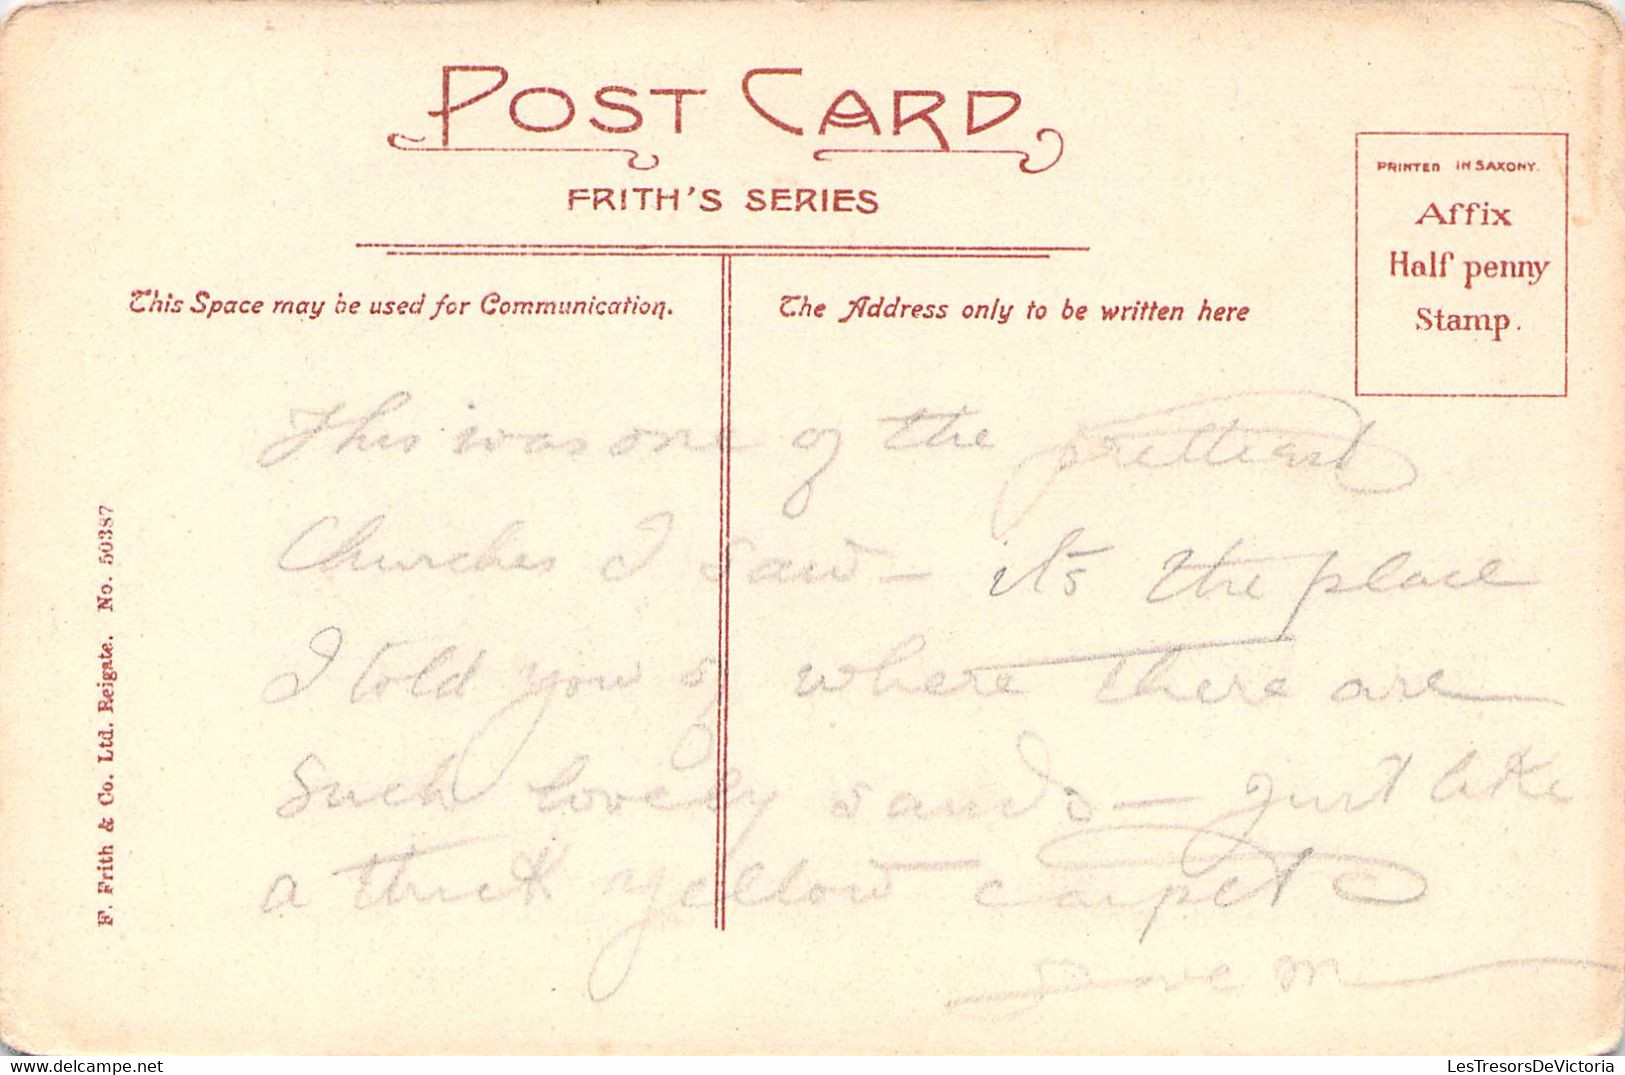 POST CARD
FRITH'S SERIES
PRINTED IN SAXONY.
Affix
Half penny
Stamp.
This Space may be used for Communication.
The Address only to be written here
This was one of the prettiest
Churches I saw – it's the place
I told you of where there are
such lovely sands – just like
a thick yellow carpet
F. Frith & Co. Ltd. Reigate. No. 50387
delcampe.net
LesTresorsDeVictoria